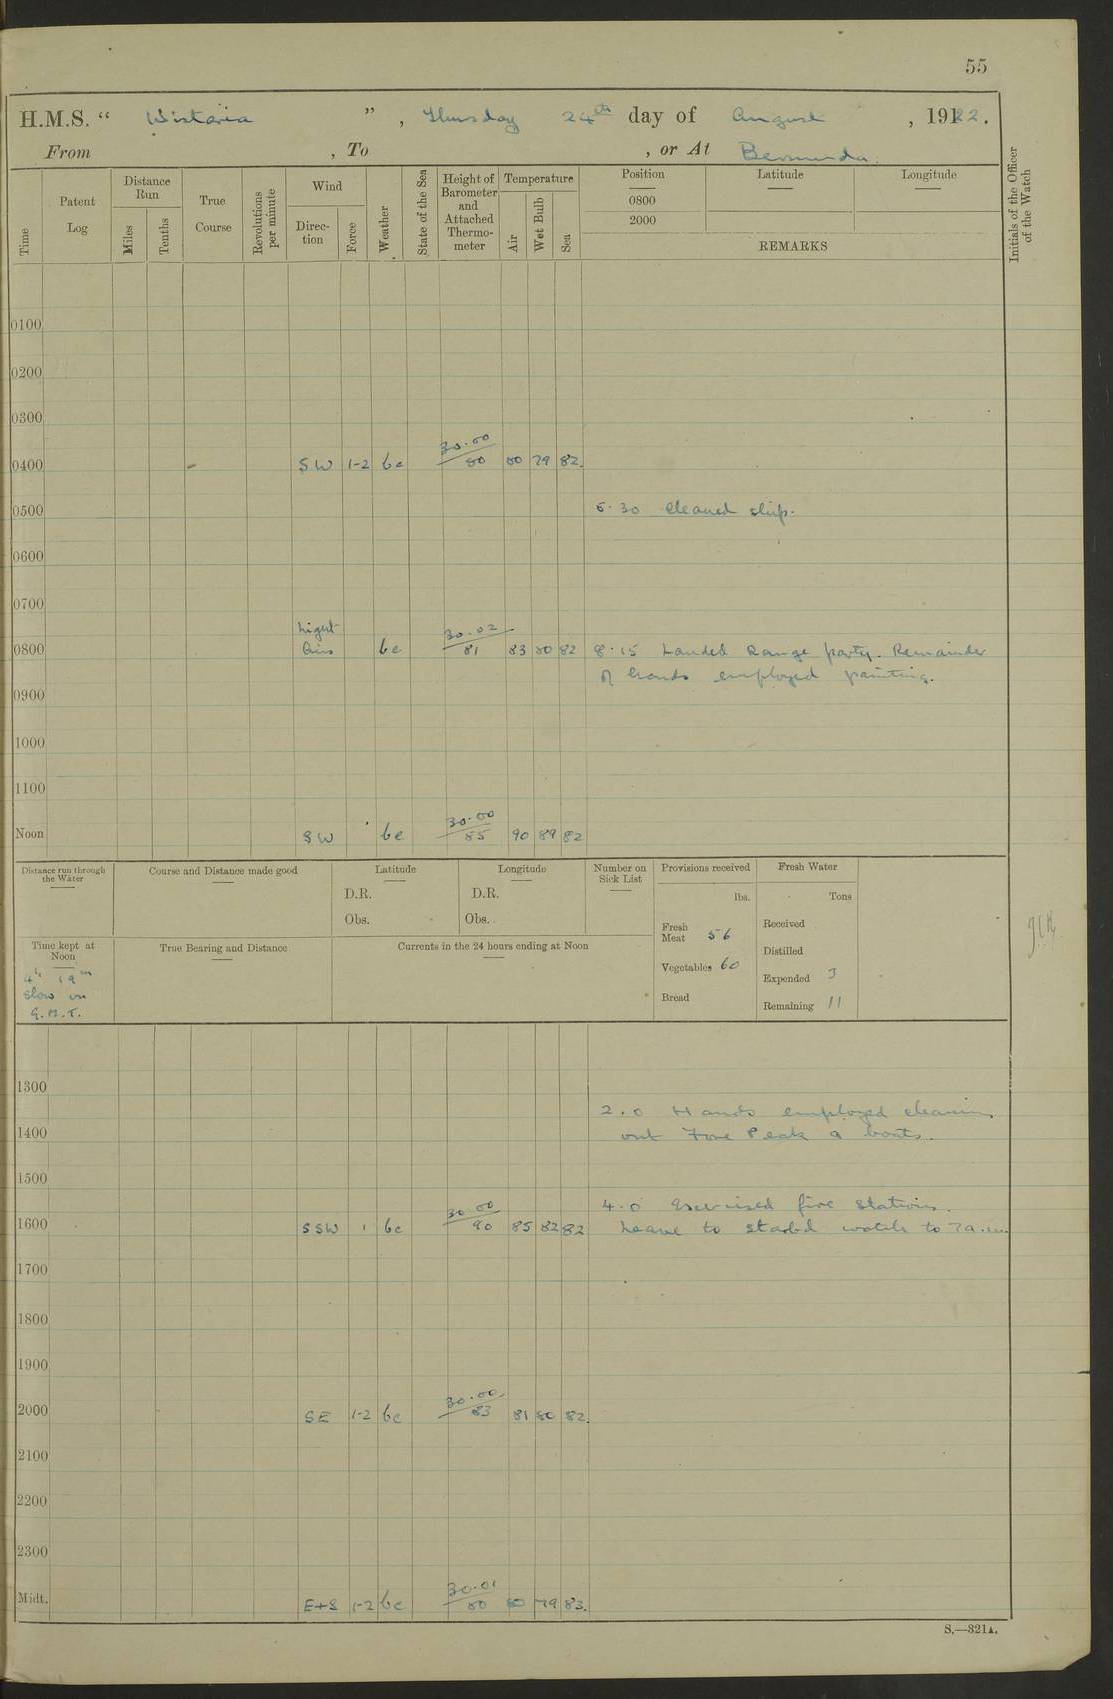 55
H.M.S. “ Wistaria ”, Thursday 24th day of August, 1922.
From , To , or At Bermuda.
Time
Patent Log
Distance Run
Miles
Tenths
True Course
Revolutions per minute
Wind
Direc-tion
Force
Weather
State of the Sea
Height of Barometer and Attached Thermo-meter
Temperature
Air
Wet Bulb
Sea
Position
0800
2000
Latitude
Longitude
REMARKS
Initials of the Officer of the Watch
0100
0200
0300
30.00
0400 SW 1-2 bc 80 80 79 82.
0500 5.30 Cleaned ship.
0600
0700
Light 30.02
0800 Airs bc 81 83 80 82 8.15 Landed Range party. Remainder
of hands employed painting.
0900
1000
1100
30.00
Noon SW bc 85 90 89 82
Distance run through the Water
Course and Distance made good
Latitude
D.R.
Obs.
Longitude
D.R.
Obs.
Number on Sick List
Provisions received
lbs.
Fresh Meat 56
Vegetables 60
Bread
Fresh Water
Tons
Received
Distilled
Expended 3
Remaining 11
Time kept at Noon
4h 19m
slow on
G.M.T.
True Bearing and Distance
Currents in the 24 hours ending at Noon
1300
2.0 Hands employed cleaning
1400 out Fore Peak & boats.
1500
30.00 4.0 Exercised fire stations.
1600 SSW 1 bc 90 85 82 82 Leave to starbd watch to 7a.m.
1700
1800
1900
30.00
2000 SE 1-2 bc 83 81 80 82.
2100
2200
2300
30.01
Midt. E+S 1-2 bc 80 80 79 83.
S.—321A.